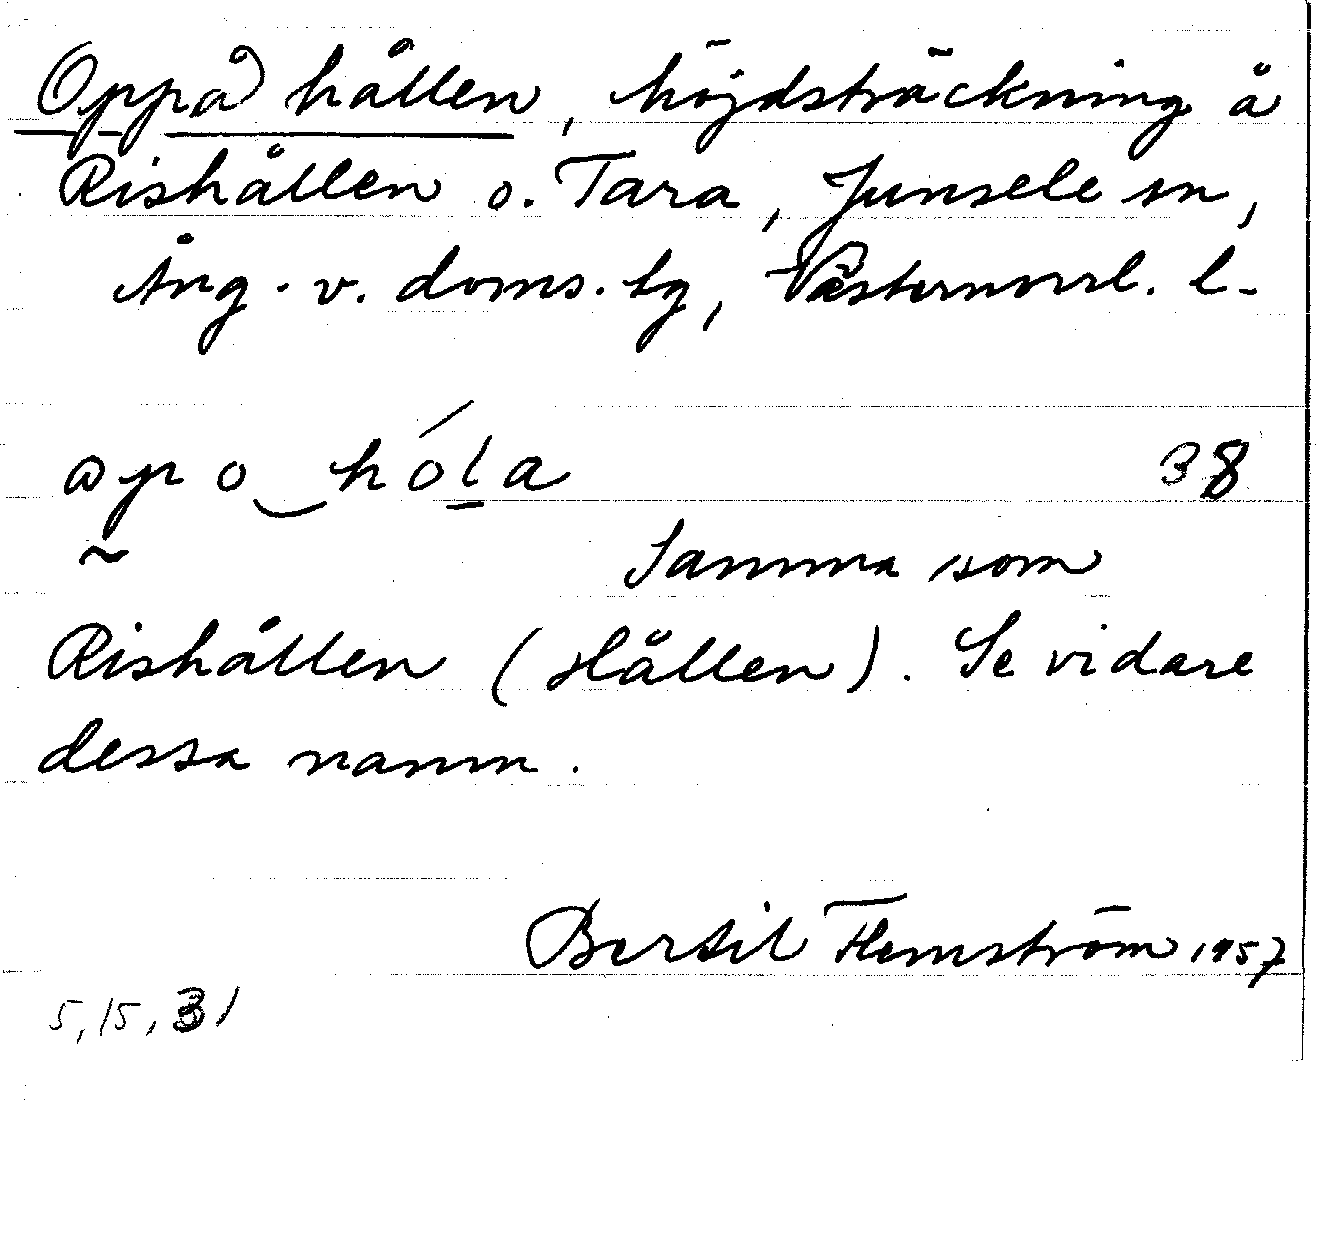 Oppå hållen, höjdsträckning å
Rishållen o. Tara, Junsele sn,
Ång. v. doms. tg, Västernorrl. l.
apo hóla 38
Samma som
Rishållen (Hållen). Se vidare
dessa namn.
Bertil Flemström 1957
5, 15, 31